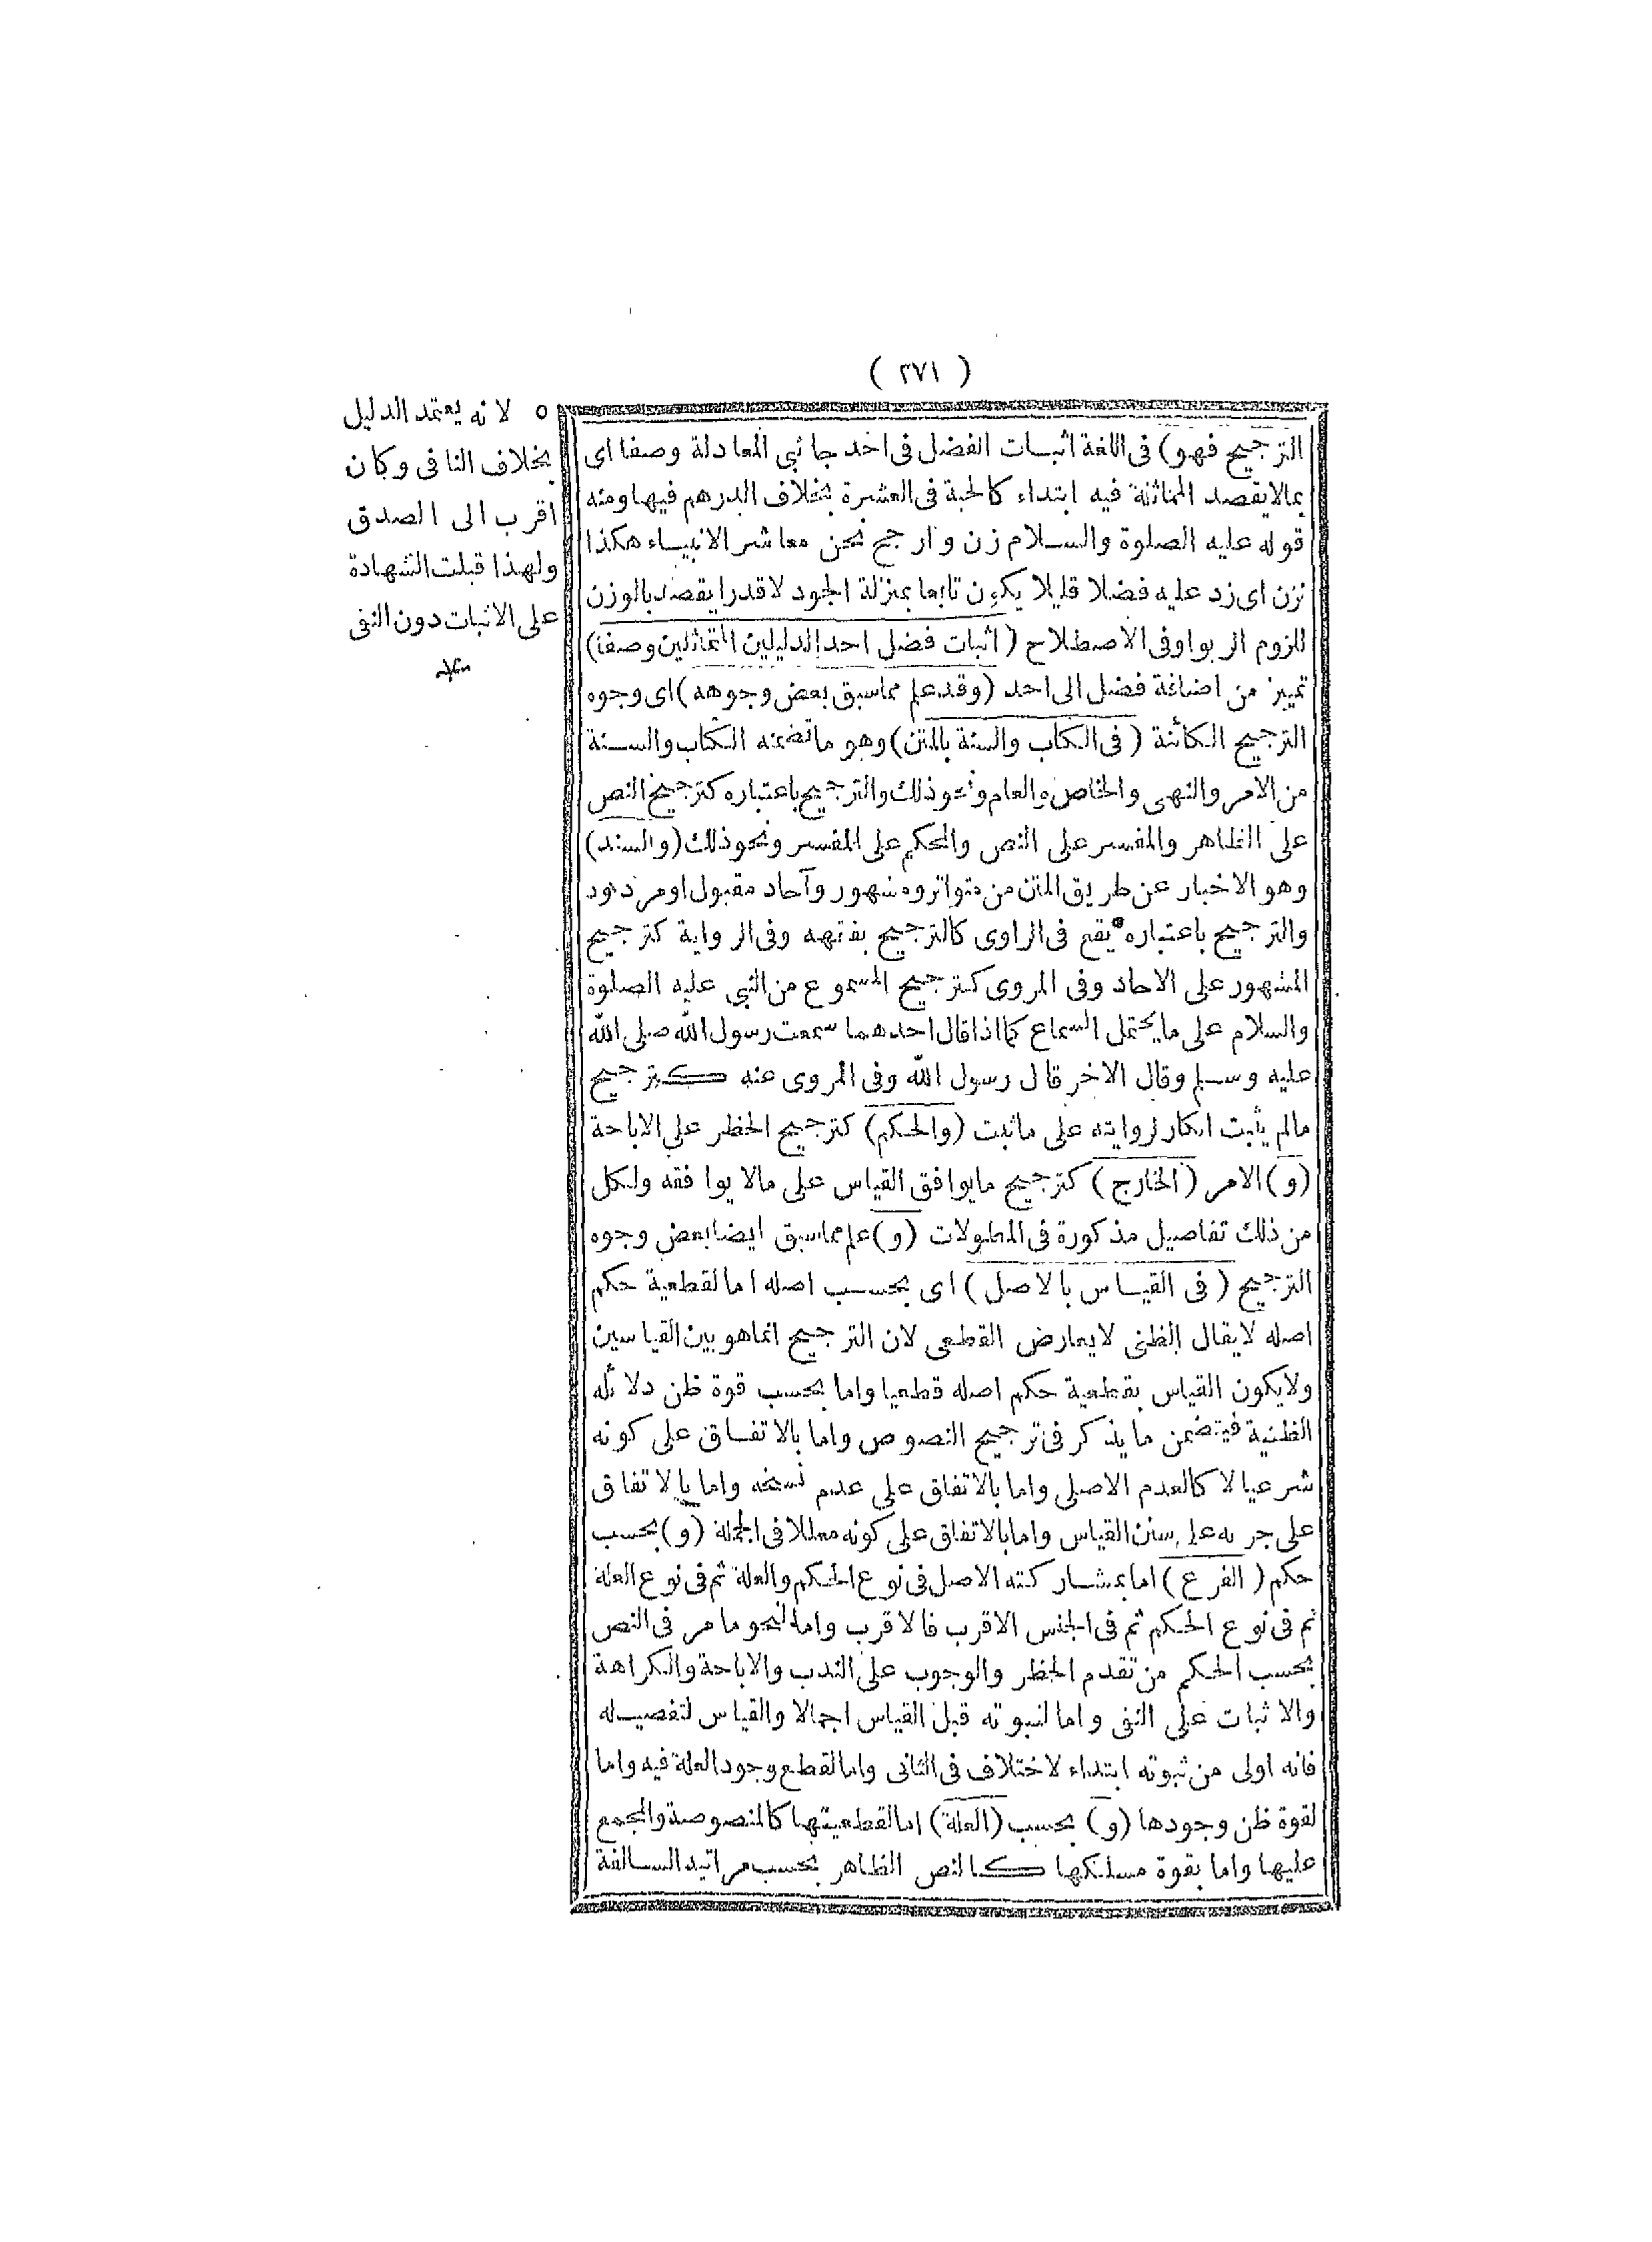 ( ٢٧١ )
الترجيح فهو) فى اللغة اثبات الفضل فى احد جانبى المعادلة وصفا اى
بمالايقصد المماثلة فيه ابتداء كالحبة فى العشرة بخلاف الدرهم فيها ومنه
قوله عليه الصلوة والسلام زن وارجح نحن معاشر الانبياء هكذا
نزن اى زد عليه فضلا قليلا يكون تابعا بمنزلة الجود لاقدرا يقصد بالوزن
للزوم الربوا وفى الاصطلاح (اثبات فضل احد الدليلين المتماثلين وصفا)
تمييز من اضافة فضل الى احد (وقد علم مماسبق بعض وجوهه) اى وجوه
الترجيح الكائنة (فى الكتاب والسنة بالمتن) وهو ماتضمنه الكتاب والسنة
من الامر والنهى والخاص والعام ونحو ذلك والترجيح باعتباره كترجيح النص
على الظاهر والمفسر على النص والمحكم على المفسر ونحو ذلك (والسند)
وهو الاخبار عن طريق المتن من متواتر ومشهور وآحاد مقبول او مردود
والترجيح باعتباره يقع فى الراوى كالترجيح بفقهه وفى الرواية كترجيح
المشهور على الاحاد وفى المروى كترجيح المسموع من النبى عليه الصلوة
والسلام على مايحتمل السماع كما اذا قال احدهما سمعت رسول الله صلى الله
عليه وسلم وقال الاخر قال رسول الله وفى المروى عنه كترجيح
مالم يثبت انكار لروايته على ماثبت (والحكم) كترجيح الحظر على الاباحة
(و) الامر (الخارج) كترجيح مايوافق القياس على مالا يوافقه ولكل
من ذلك تفاصيل مذكورة فى المطولات (و) علم مماسبق ايضا بعض وجوه
الترجيح (فى القياس بالاصل) اى بحسب اصله اما لقطعية حكم
اصله لايقال الظنى لايعارض القطعى لان الترجيح انماهو بين القياسين
ولايكون القياس بقطعية حكم اصله قطعيا واما بحسب قوة ظن دلائله
الظنية فيتضمن مايذكر فى ترجيح النصوص واما بالاتفاق على كونه
شرعيا لا كالعدم الاصلى واما بالاتفاق على عدم نسخه واما بالاتفاق
على جريه على سنن القياس واما بالاتفاق على كونه معللا فى الجملة (و) بحسب
حكم (الفرع) اما بمشاركته الاصل فى نوع الحكم والعلة ثم فى نوع العلة
ثم فى نوع الحكم ثم فى الجنس الاقرب فالاقرب واما لنحو مامر فى النص
بحسب الحكم من تقدم الحظر والوجوب على الندب والاباحة والكراهة
والاثبات على النفى واما لثبوته قبل القياس اجمالا والقياس لتفصيله
فانه اولى من ثبوته ابتداء لاختلاف فى الثانى واما لقطع وجود العلة فيه واما
لقوة ظن وجودها (و) بحسب (العلة) اما لقطعيتها كالمنصوصة والمجمع
عليها واما بقوة مسلكها كالنص الظاهر بحسب مراتبه السالفة
٥ لانه يعتمد الدليل
بخلاف النافى وكان
اقرب الى الصدق
ولهذا قبلت الشهادة
على الاثبات دون النفى